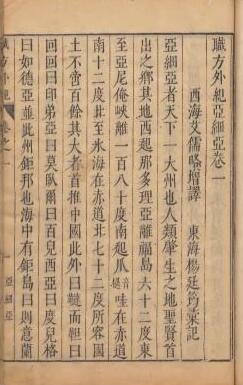 職方外紀亞細亞卷一
西海艾儒畧增譯　東海楊廷筠彙記
亞細亞者天下一大州也人類肇生之地聖賢首
出之鄉其地西起那多理亞離福島六十二度東
至亞尼俺峽離一百八十度南起爪哇在赤道
音堤
南十二度北至氷海在赤道北七十二度所容國
土不啻百餘其大者首推中國此外曰韃而靼曰
回回曰印弟亞曰莫臥爾曰百兒西亞曰度兒格
曰如德亞並此州鉅邦也海中有鉅島曰則意蘭
職方外紀
卷之一
一
亞細亞